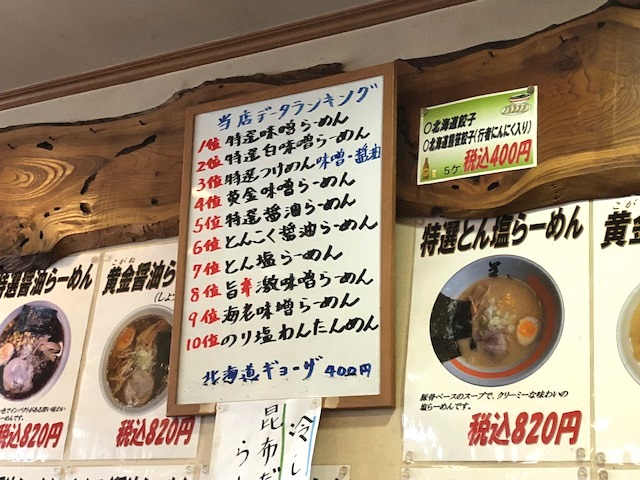 当店データランキング
1位 特選味噌らーめん
2位 特選白味噌らーめん
3位 特選つけめん味噌・醤油
4位 黄金味噌らーめん
5位 特選醤油らーめん
6位 とんこく醤油らーめん
7位 とん塩らーめん
8位 旨辛激味噌らーめん
9位 海老味噌らーめん
10位 のり塩わんたんめん
北海道ギョーザ 400円
○北海道餃子
○北海道熊笹餃子(行者にんにく入り)
5ケ 税込400円
特選醤油らーめん
税込820円
こがね
黄金醤油ら
(しょう
税込820円
特選とん塩らーめん
豚骨ベースのスープで、クリーミーな味わいの
塩らーめんです。
税込820円
こがね
黄金
冷し
昆布だ
らー